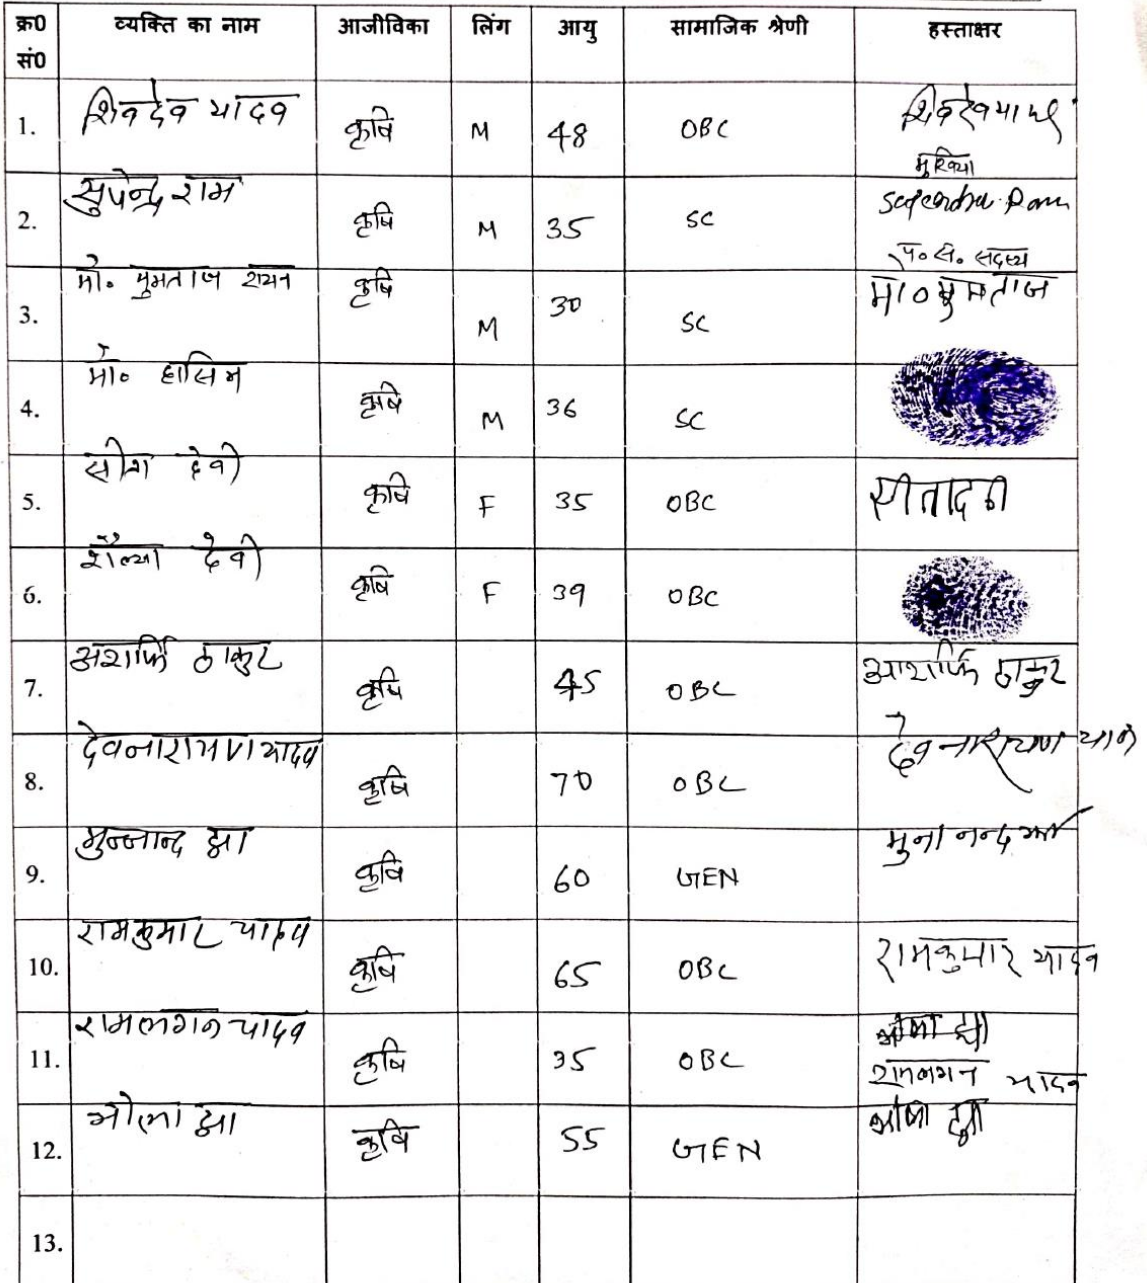 क्र0 सं0 व्यक्ति का नाम आजीविका लिंग आयु सामाजिक श्रेणी हस्ताक्षर
1. शिवदेव यादव कृषि M 48 OBC शिवदेव
मुखिया
2. सुपेन्द्र राम कृषि M 35 SC Ram
पं० स० सदस्य
3. मो० मुमताज रायन कृषि M 30 SC मो० मुमताज
4. मो० हासिम कृषि M 36 SC
5. सीता देवी कृषि F 35 OBC सीता देवी
6. शैल्या देवी कृषि F 39 OBC
7. अशर्फि ठाकुर कृषि 45 OBC आशर्फि ठाकुर
8. देवनारायण यादव कृषि 70 OBC देव नारायण यादव
9. मुन्नानन्द झा कृषि 60 GEN मुना नन्द झा
10. रामकुमार यादव कृषि 65 OBC रामकुमार यादव
11. रामलगन यादव कृषि 35 OBC रामलगन यादव
12. भोला झा कृषि 55 GEN भोला झा
13.